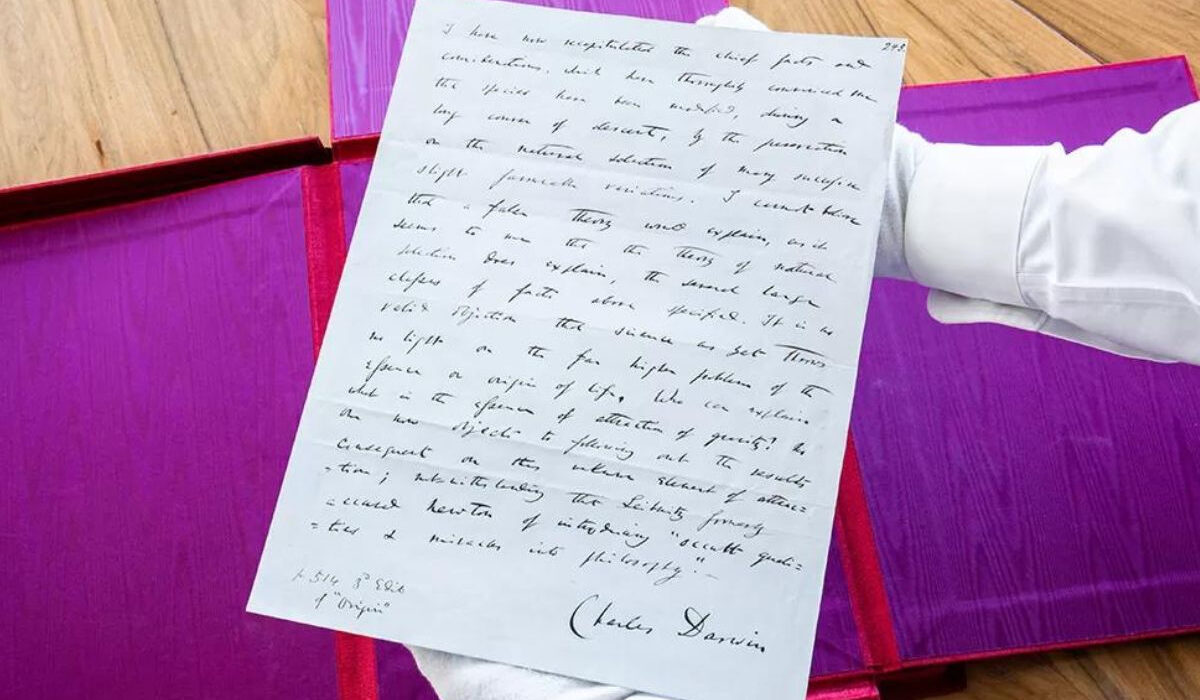 I have now recapitulated the chief facts and
considerations, which have thoroughly convinced me
that species have been modified, during a
long course of descent, by the preservation
or the natural selection of many successive
slight favourable variations. I cannot believe
that a false theory would explain, as it
seems to me that the theory of natural
selection does explain, the several large
classes of facts above specified. It is no
valid objection that science as yet throws
no light on the far higher problem of the
essence or origin of life. Who can explain
what is the essence of attraction of gravity? No
one now objects to following out the results
consequent on this unknown element of attrac=
=tion; notwithstanding that Leibnitz formerly
accused Newton of introducing "occult quali=
=ties & miracles into philosophy."—
p. 514 3d Edit
of "Origin"
Charles Darwin